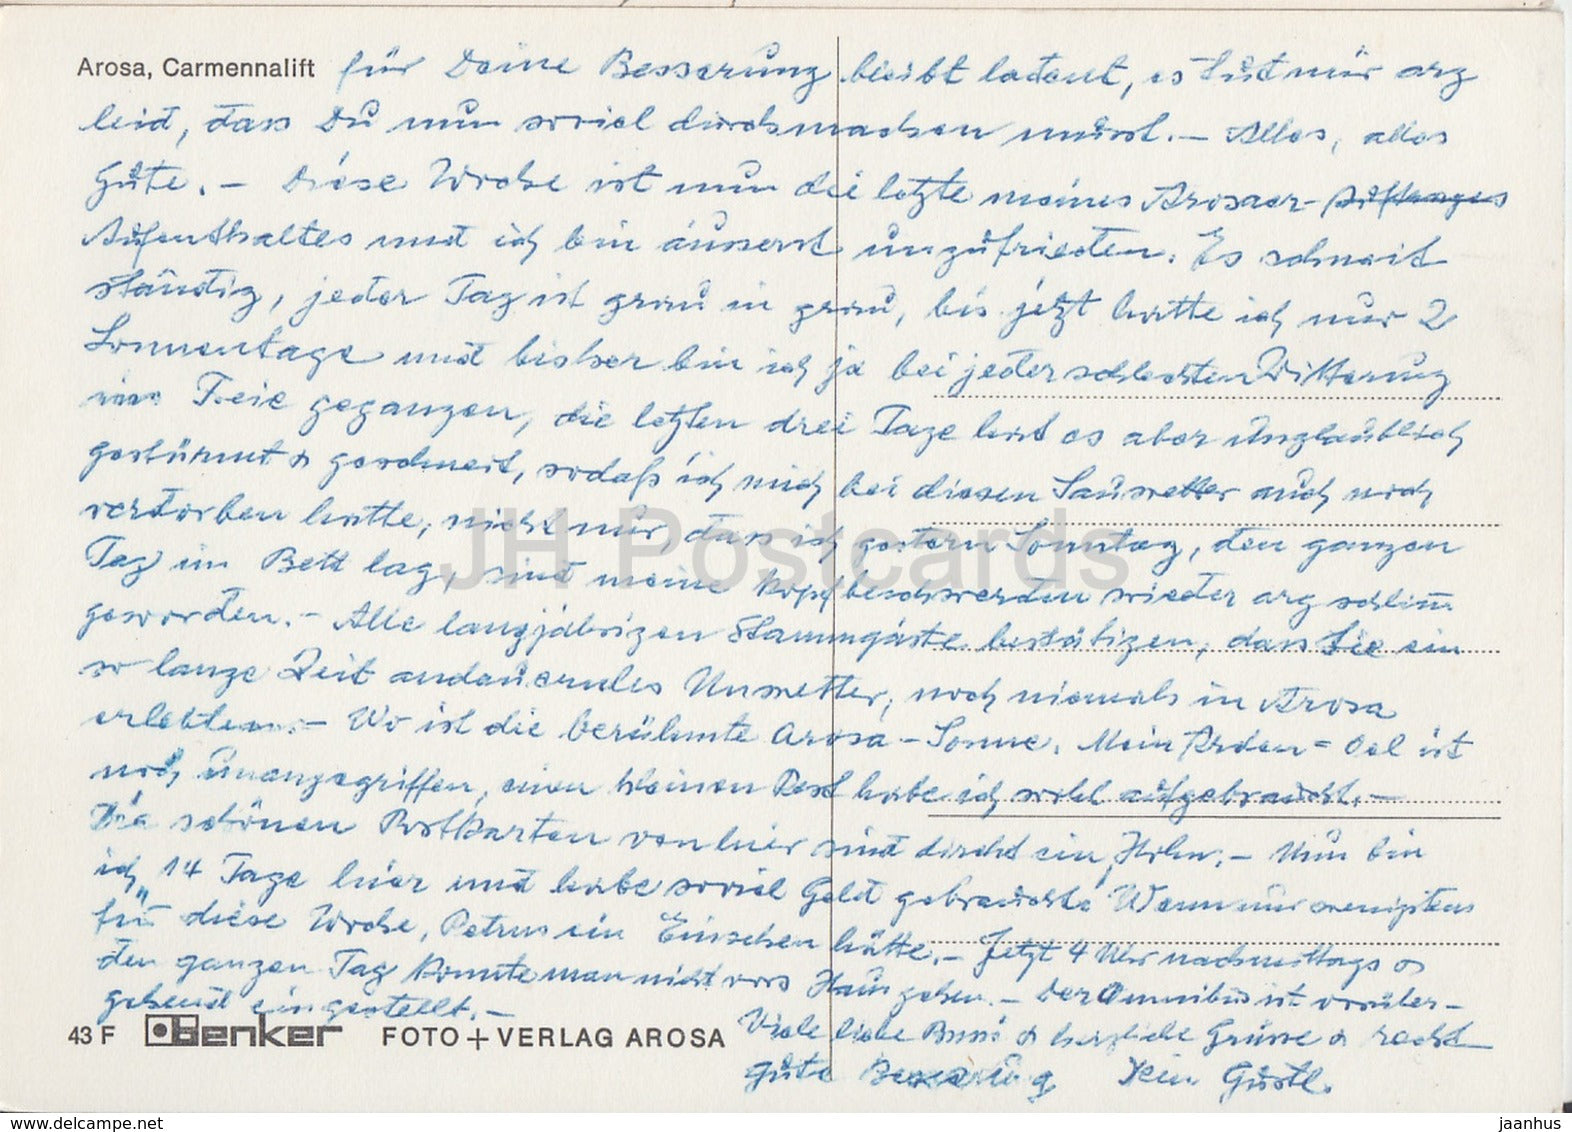 Arosa, Carmennalift für Deine Besserung bleibt latent, es tut mir arg
leid, dass Du nun soviel durchmachen musst. — Alles, alles
Gute. — Diese Woche ist nun die letzte meines Arosaer-
Aufenthaltes und ich bin äusserst unzufrieden. Es schneit
ständig, jeder Tag ist grau in grau, bis jetzt hatte ich nur 2
Sonnentage und bisher bin ich ja bei jeder schlechten Witterung
ins Freie gegangen, die letzten drei Tage hat es aber unglaublich
gestürmt & geschneit, sodaß ich mich bei diesen Sauwetter auch noch
verdorben hatte, nicht nur, dass ich gestern Sonntag, den ganzen
Tag im Bett lag, sind meine Kopfbeschwerden wieder arg schlimm
geworden. — Alle langjährigen Stammgäste bestätigen, dass sie ein
so lange Zeit andauerndes Unwetter, noch niemals in Arosa
erlebten. — Wo ist die berühmte Arosa-Sonne. Mein Arden=Oel ist
noch unangegriffen, einen kleinen Rest habe ich wohl aufgebraucht. —
Die schönen Postkarten von hier sind direkt ein Hohn. — Nun bin
ich 14 Tage hier und habe soviel Geld gebraucht. Wenn nur wenigstens
für diese Woche, Petrus ein Einsehen hätte. — Jetzt 4 Uhr nachmittags &
den ganzen Tag konnte man nicht vors Haus gehen. — Der Omnibus ist vorüber-
gehend eingestellt. —
Viele liebe Bussi & herzliche Grüsse & recht
gute Besserung Dein Gustl.
43 F Benker FOTO + VERLAG AROSA
JH Postcards
jaanhus